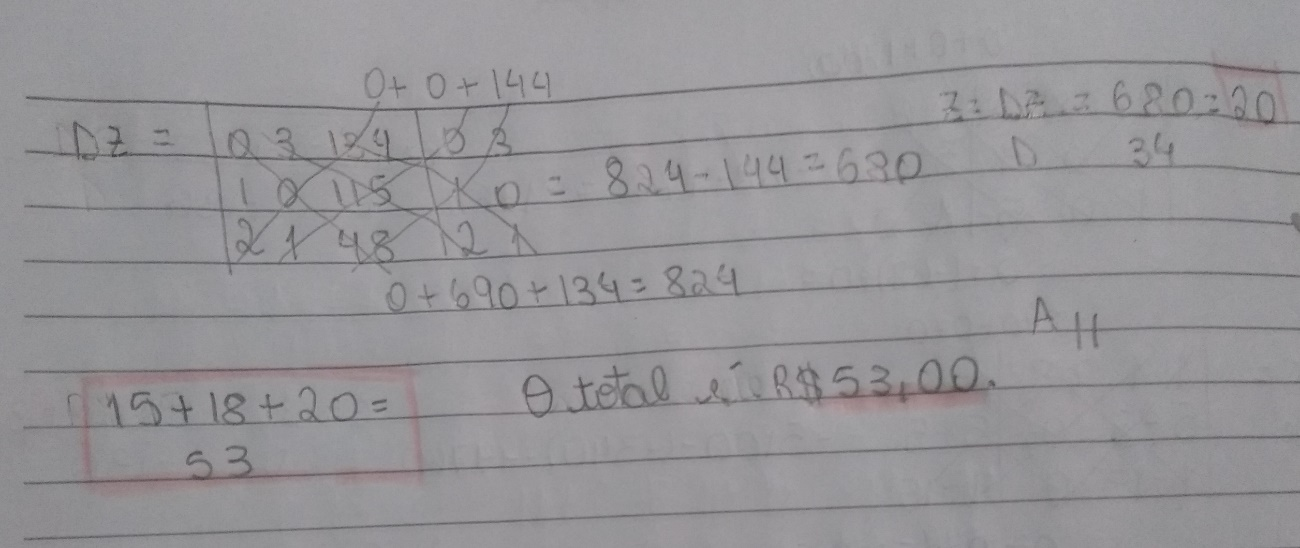 0 + 0 + 144
Dz = | 0 3 134 | 0 3
| 1 0 115 | 1 0 = 824 - 144 = 680
| 2 1 48 | 2 1
0 + 690 + 134 = 824
Z = Dz = 680 = 20
D 34
A //
15 + 18 + 20 =
53
O total é R$ 53,00.